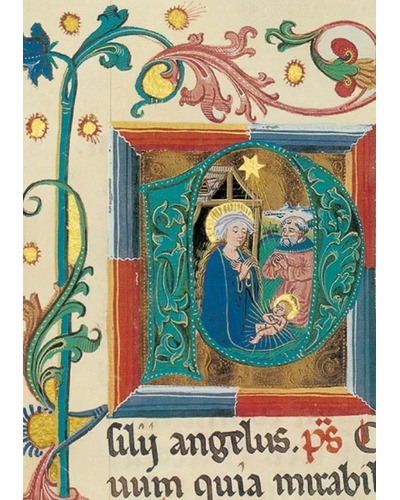 P
silij angelus. p̄s C
uum quia mirabil